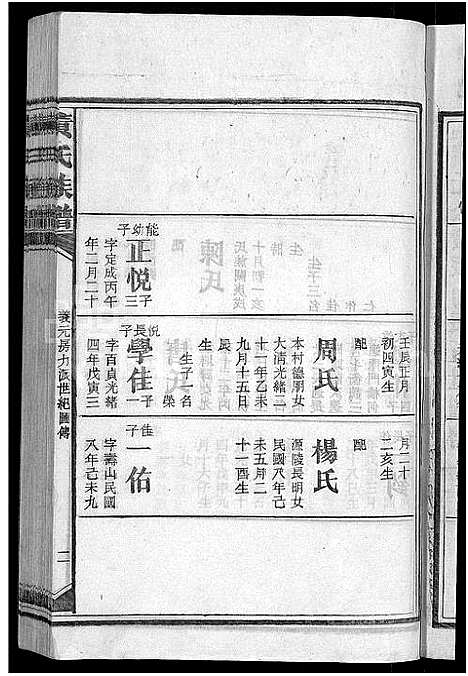 能幼子
正悅
子三
字定成丙午
年二月二十
壬辰正月
初四寅生
配
周氏
本村德朋女
大清光緒二
十一年乙未
九月十五日
辰
生子一名
榮
悅長子
學佳
子一
字百貞光緒
四年戊寅三
月二十
二亥生
配
楊氏
源陵長明女
民國八年己
未五月二
十一酉生
佳子
一佑
字壽山民國
八年己未九
黃氏族譜
養元房九派世紀匯傳
二